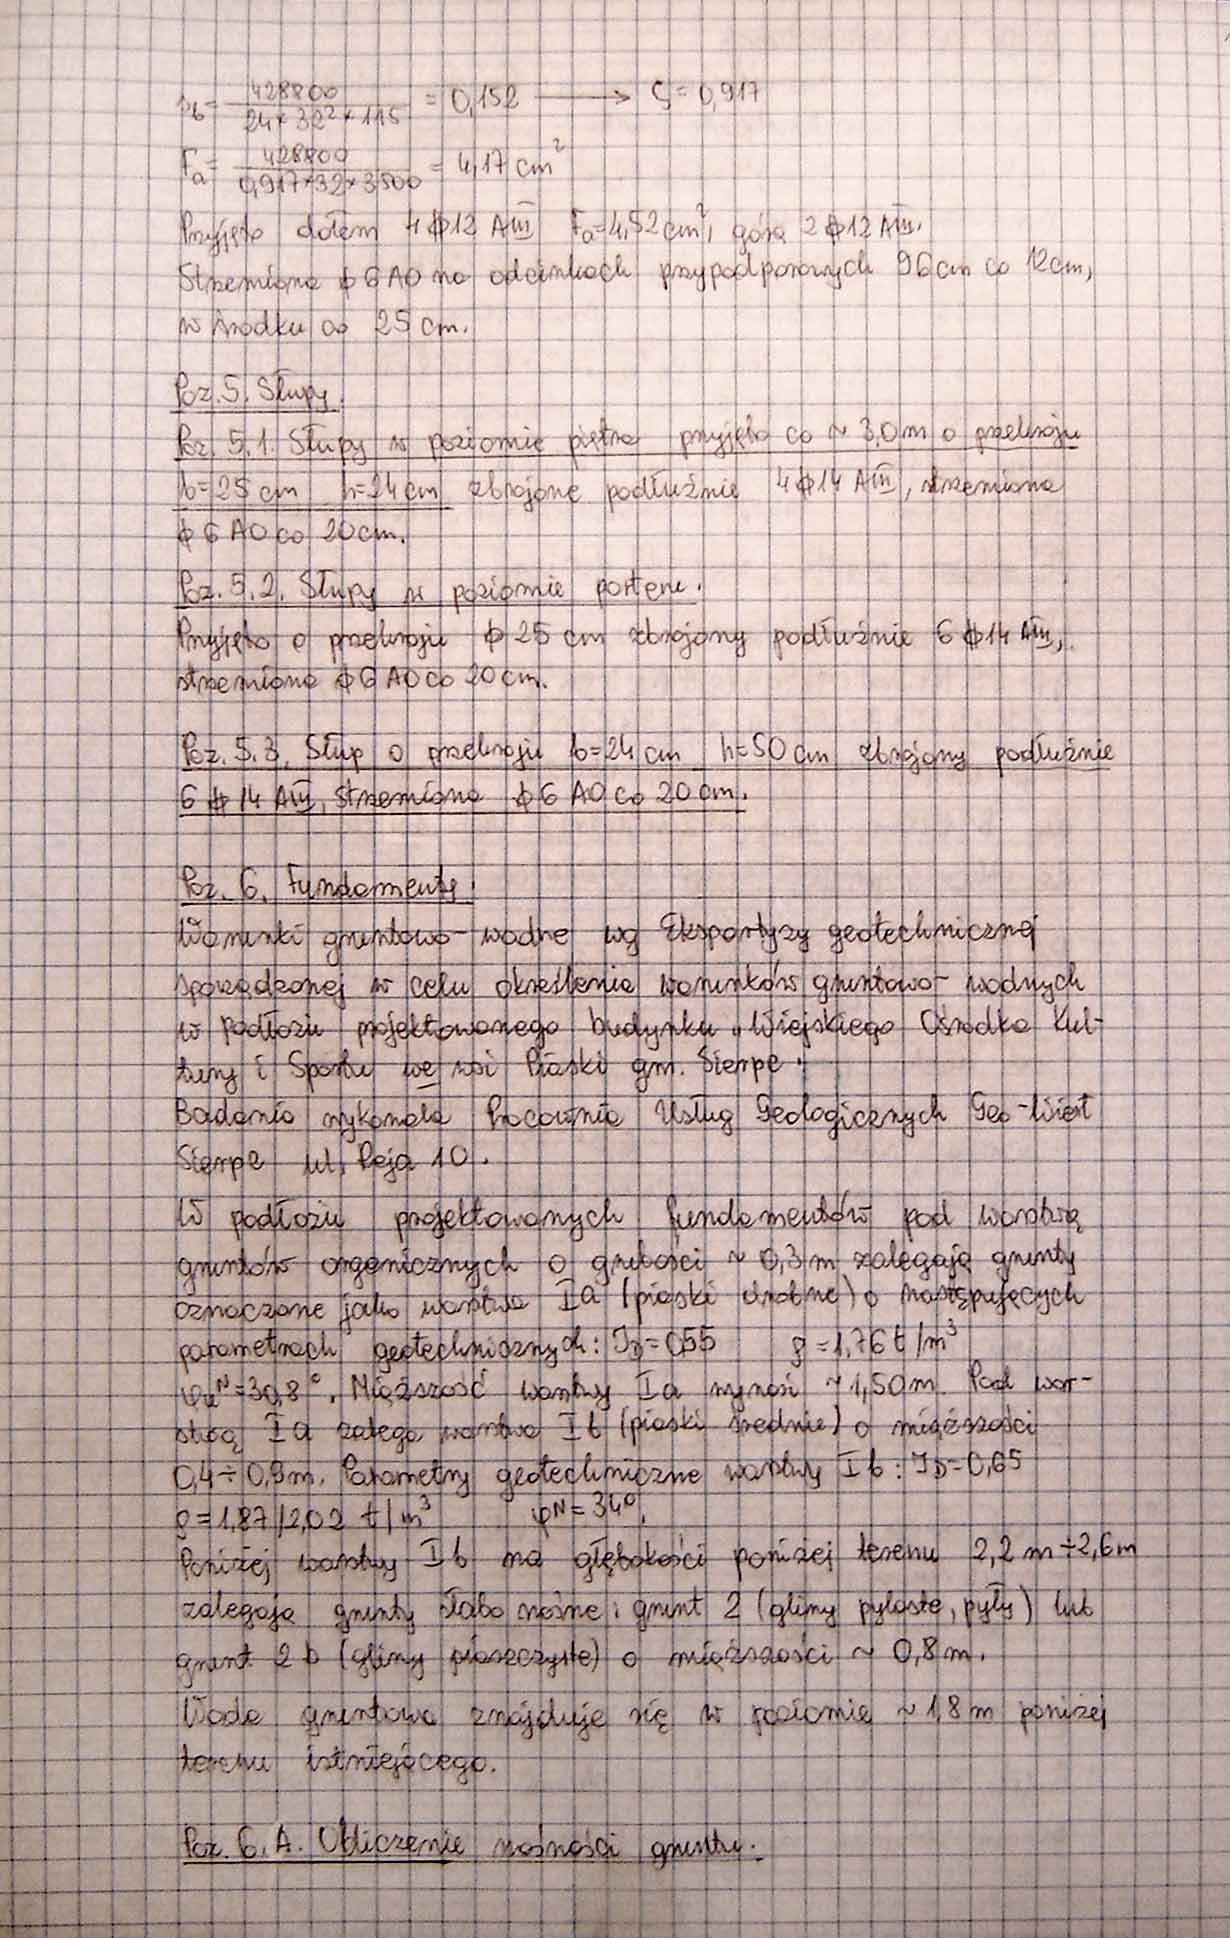 s_b = 428800 / (24 × 32² × 115) = 0,152 → ζ = 0,917
F_a = 428800 / (0,917 × 32 × 3500) = 4,17 cm²
Przyjęto dołem 4 ϕ 12 AIII F_a=4,52 cm², górą 2 ϕ 12 AIII.
Strzemiona ϕ 6 A0 na odcinkach przypodporowych 96 cm co 12 cm,
w środku co 25 cm.
Poz. 5. Słupy.
Poz. 5.1. Słupy w poziomie piętra przyjęto co ~ 3,0 m o przekroju
b=25 cm h=24 cm zbrojone podłużnie 4 ϕ 14 AIII, strzemiona
ϕ 6 A0 co 20 cm.
Poz. 5.2. Słupy w poziomie parteru.
Przyjęto o przekroju ϕ 25 cm zbrojony podłużnie 6 ϕ 14 AIII,
strzemiona ϕ 6 A0 co 20 cm.
Poz. 5.3. Słup o przekroju b=24 cm h=50 cm zbrojony podłużnie
6 ϕ 14 AIII, strzemiona ϕ 6 A0 co 20 cm.
Poz. 6. Fundamenty.
Warunki gruntowo-wodne wg Ekspertyzy geotechnicznej
sporządzonej w celu określenia warunków gruntowo-wodnych
w podłożu projektowanego budynku „Wiejskiego Ośrodka Kul-
tury i Sportu we wsi Piaski gm. Sierpc.
Badania wykonała Pracownia Usług Geologicznych Geo-Wiert
Sierpc ul. Reja 10.
W podłożu projektowanych fundamentów pod warstwą
gruntów organicznych o grubości ~ 0,3 m zalegają grunty
oznaczone jako warstwa Ia (piaski drobne) o następujących
parametrach geotechnicznych: I_D=0,55 ρ=1,76 t/m³
φ_u^N=30,8°. Miąższość warstwy Ia wynosi ~1,50 m. Pod war-
stwą Ia zalega warstwa Ib (piaski średnie) o miąższości
0,4 ÷ 0,9 m. Parametry geotechniczne warstwy Ib: I_D=0,65
ρ=1,87/2,02 t/m³ φ^N=34°.
Poniżej warstwy Ib na głębokości poniżej terenu 2,2 m ÷ 2,6 m
zalegają grunty słabo nośne: grunt 2 (gliny pylaste, pyły) lub
grunt 2b (gliny piaszczyste) o miąższości ~ 0,8 m.
Woda gruntowa znajduje się w poziomie ~ 1,8 m poniżej
terenu istniejącego.
Poz. 6.A. Obliczenie nośności gruntu.